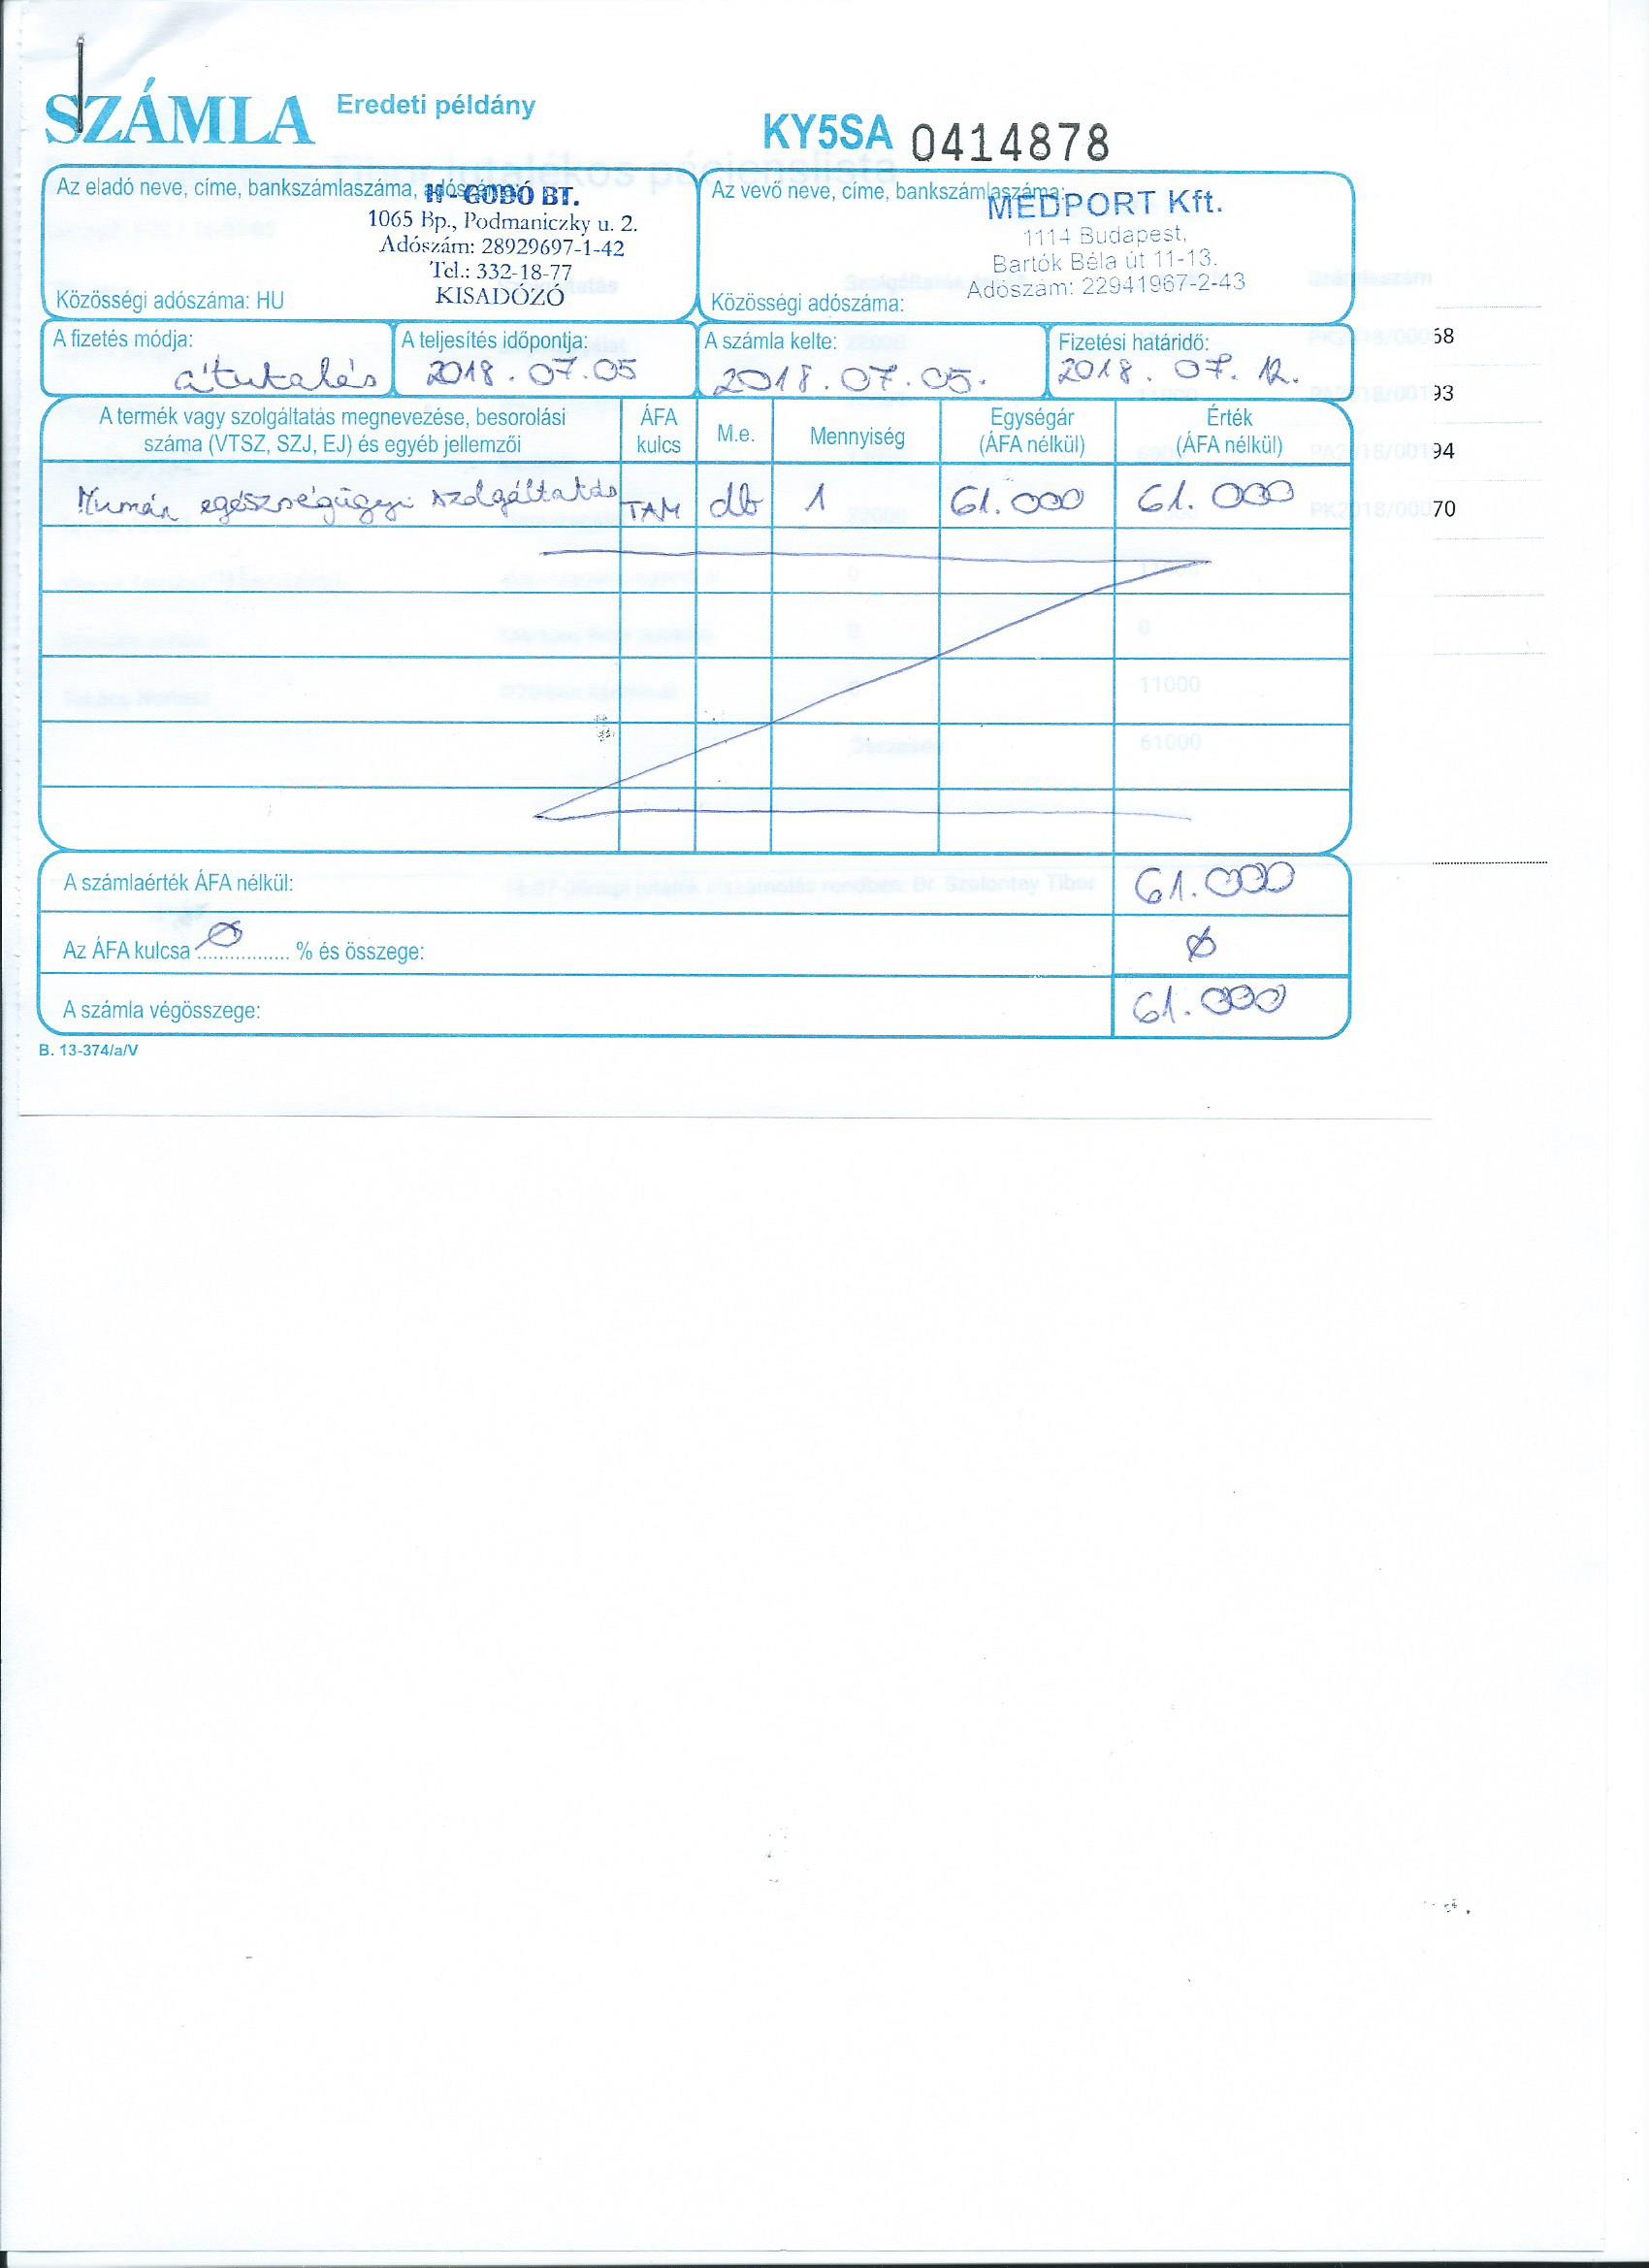 SZÁMLA Eredeti példány
KY5SA 0414878
Az eladó neve, címe, bankszámlaszáma,
H-GÓDÓ BT.
1065 Bp., Podmaniczky u. 2.
Adószám: 28929697-1-42
Tel.: 332-18-77
KISADÓZÓ
Közösségi adószáma: HU
Az vevő neve, címe, bankszámlaszáma:
MEDPORT Kft.
1114 Budapest,
Bartók Béla út 11-13.
Adószám: 22941967-2-43
Közösségi adószáma:
A fizetés módja:
átutalás
A teljesítés időpontja:
2018.07.05
A számla kelte:
2018.07.05.
Fizetési határidő:
2018.07.12.
A termék vagy szolgáltatás megnevezése, besorolási
száma (VTSZ, SZJ, EJ) és egyéb jellemzői
ÁFA
kulcs
M.e.
Mennyiség
Egységár
(ÁFA nélkül)
Érték
(ÁFA nélkül)
Humán egészségügyi szolgáltatás TAM db 1 61.000 61.000
11000
61000
A számlaérték ÁFA nélkül: 61.000
Az ÁFA kulcsa Ø % és összege: Ø
A számla végösszege: 61.000
B. 13-374/a/V
68
93
94
70